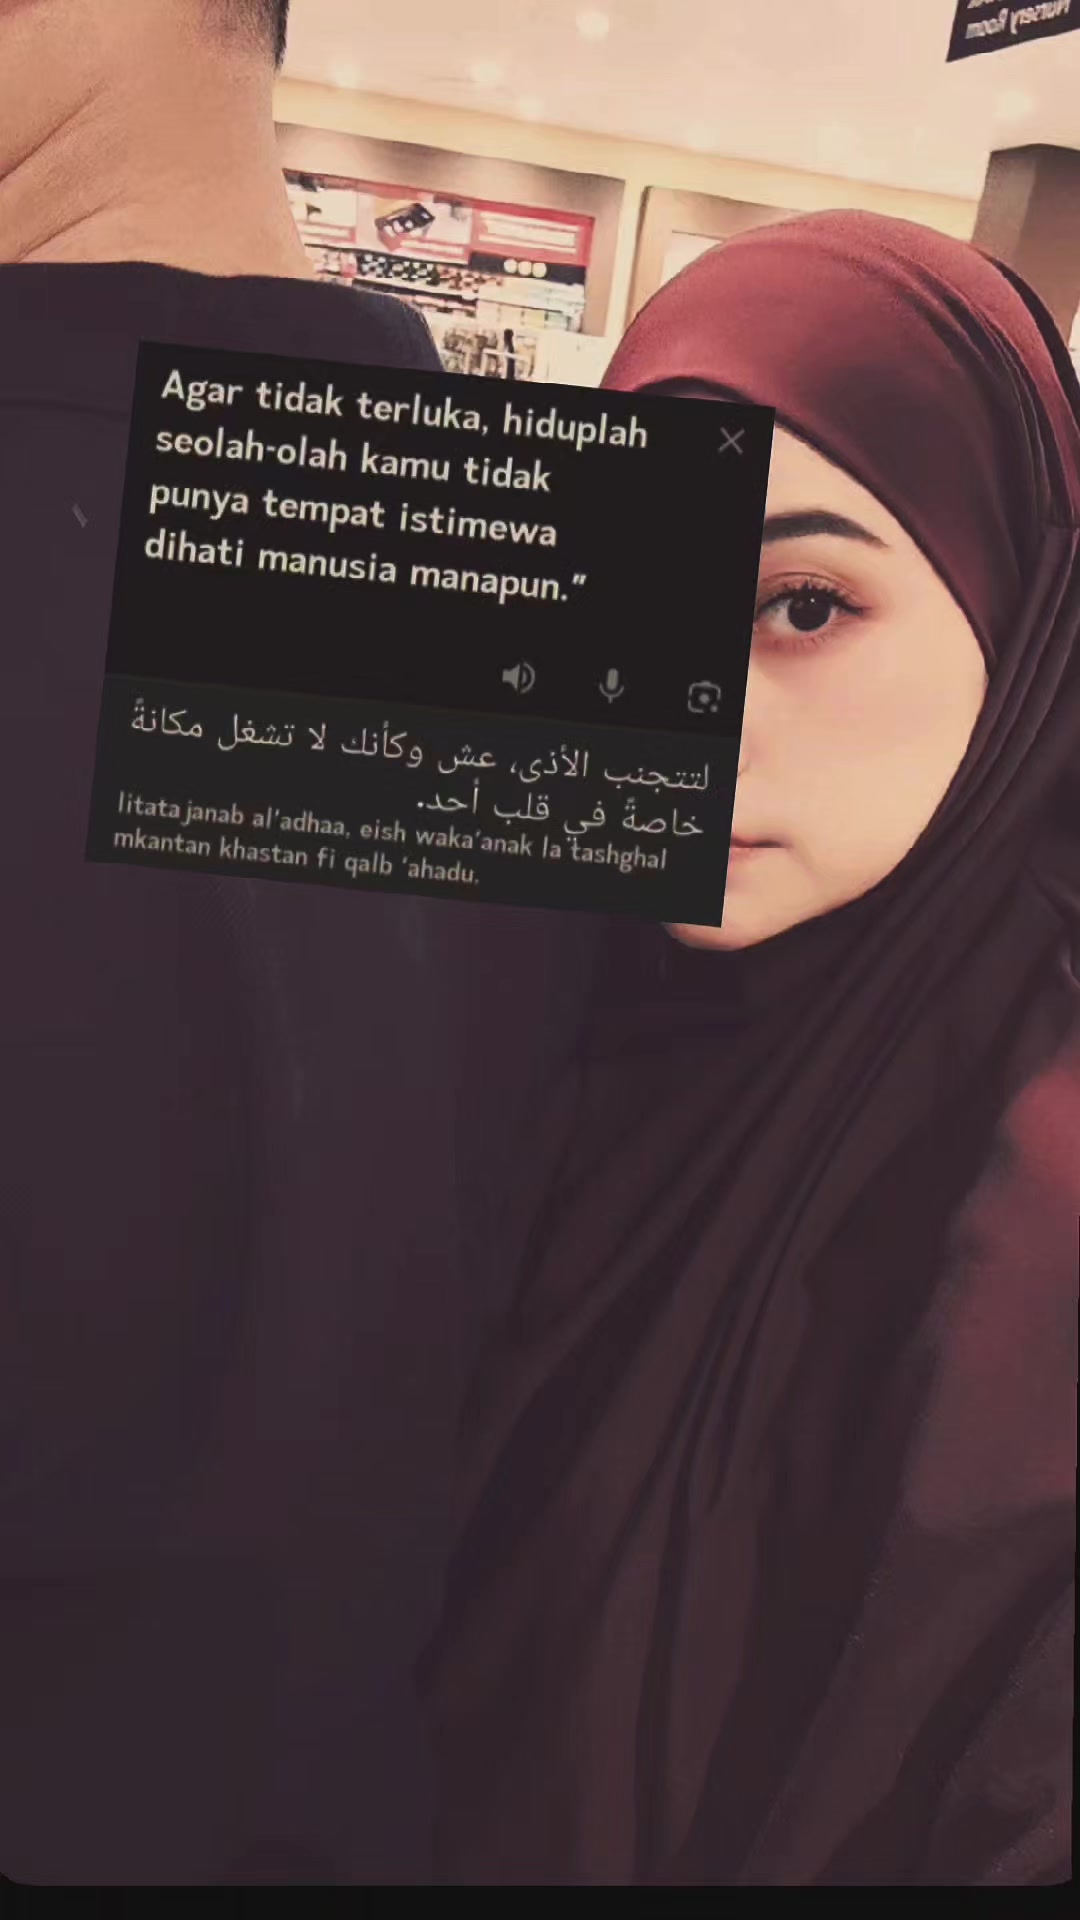 Nursery Room
Agar tidak terluka, hiduplah
seolah-olah kamu tidak
punya tempat istimewa
dihati manusia manapun.”
لتتجنب الأذى، عش وكأنك لا تشغل مكانةً
خاصةً في قلب أحد.
litatajanab al'adhaa, eish waka'anak la tashghal
mkantan khastan fi qalb 'ahadu.